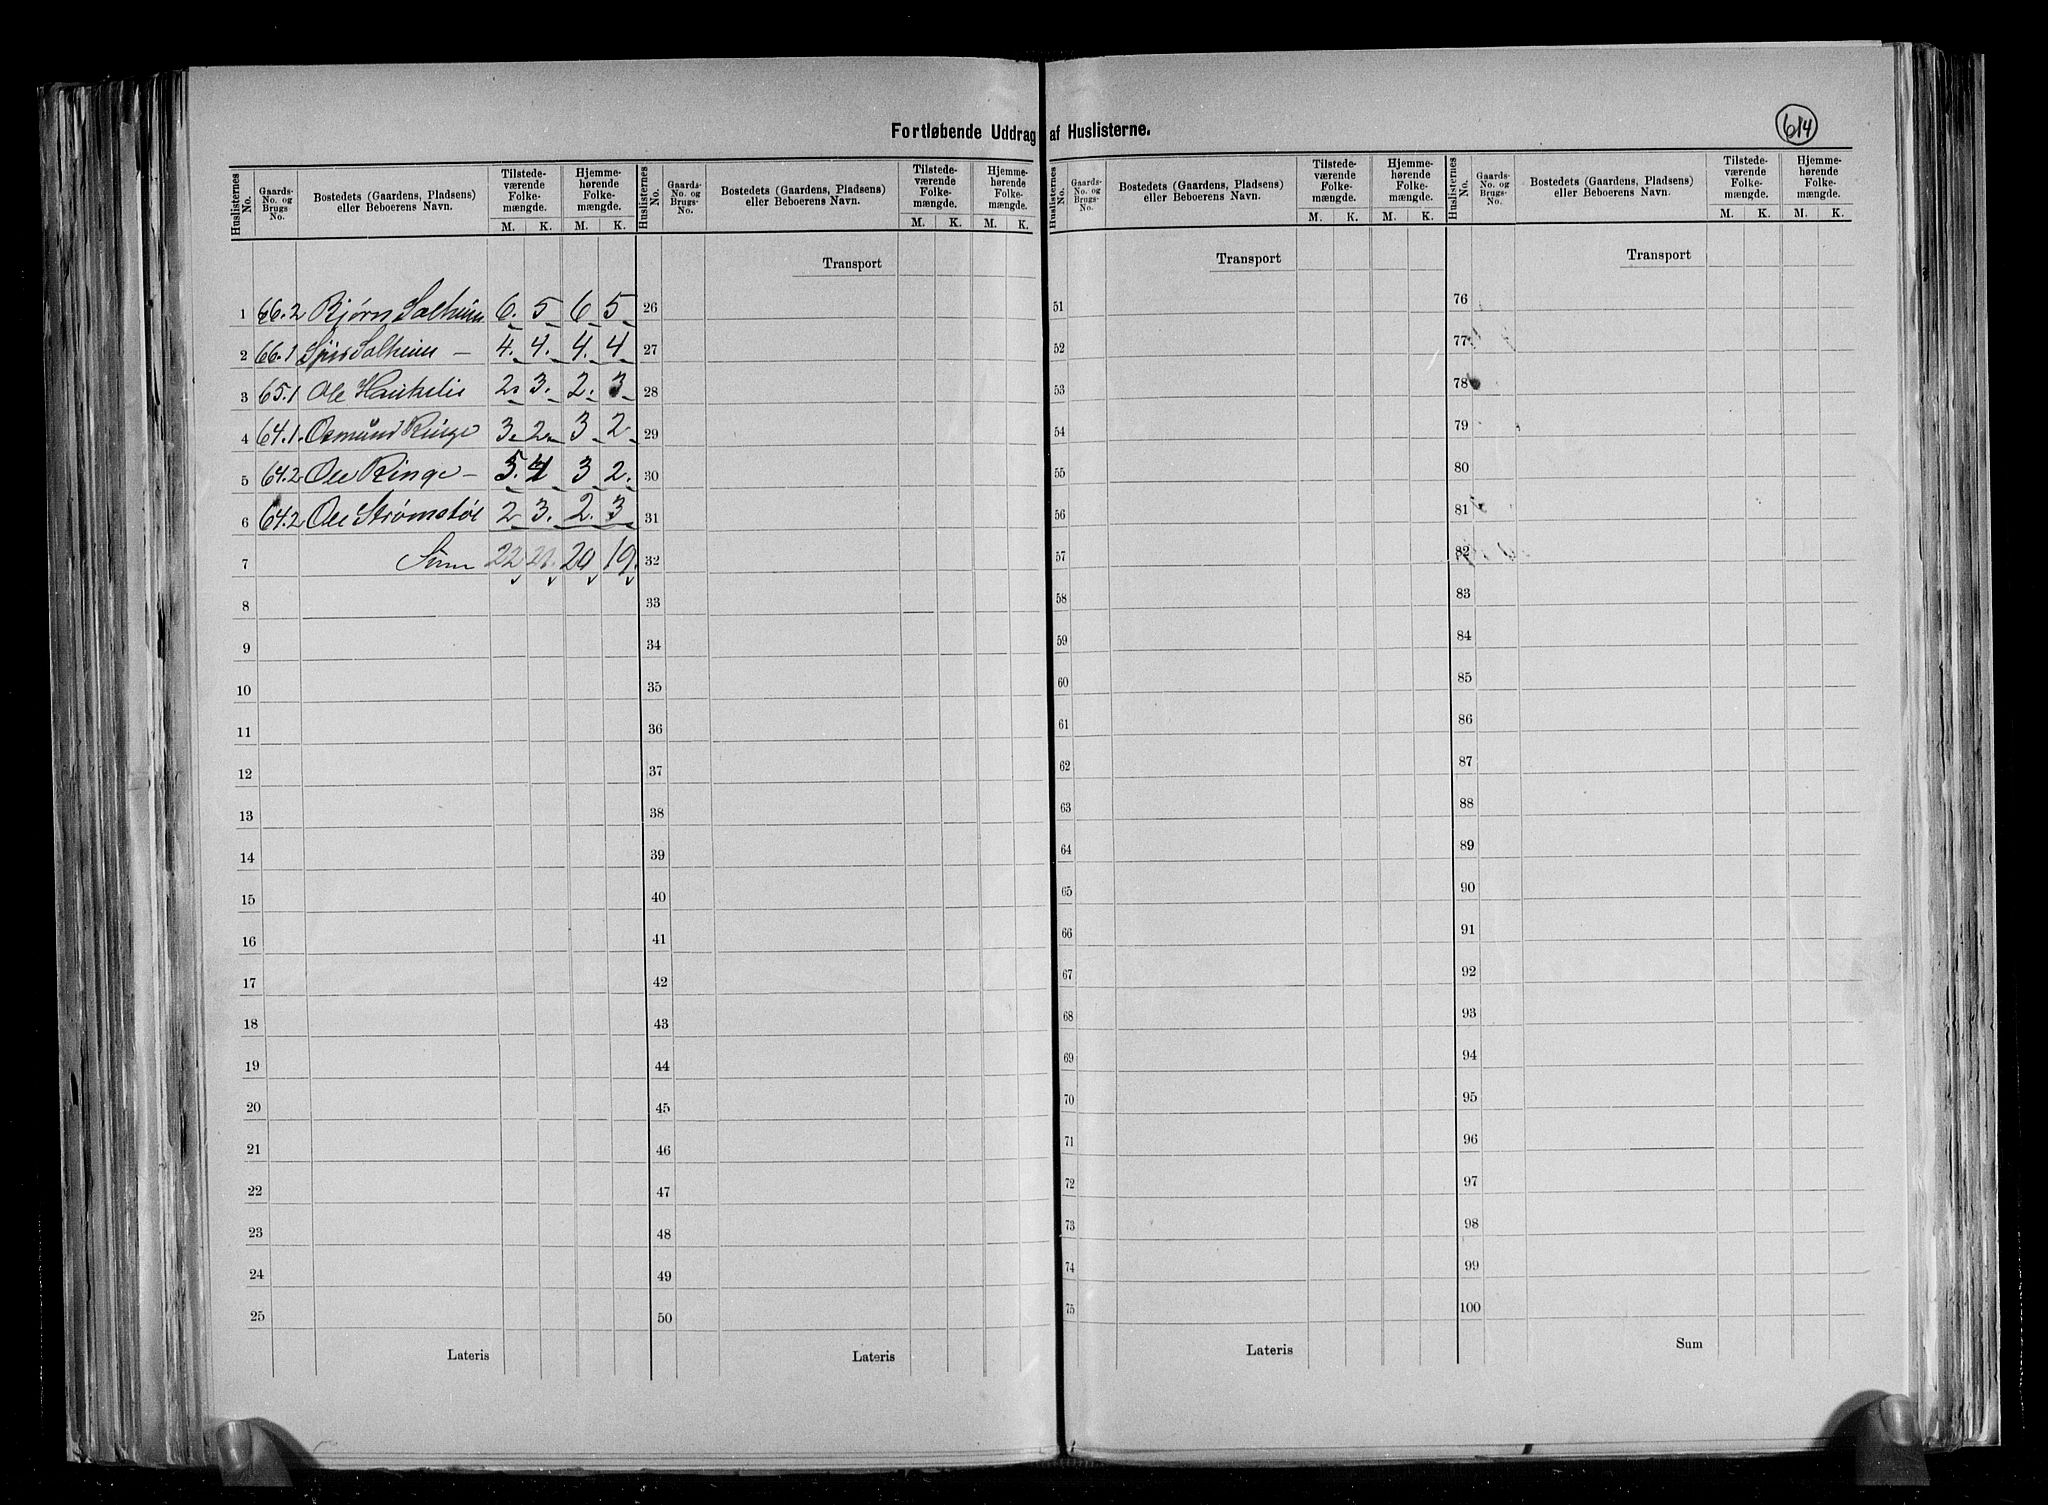 614
Fortløbende Uddrag af Huslisterne.
Huslisternes No. Gaards-No. og Brugs-No. Bostedets (Gaardens, Pladsens) eller Beboerens Navn. Tilstedeværende Folkemængde. M. K. Hjemmehørende Folkemængde. M. K.
1 66.2 Bjørn Salheim 6. 5 6 5
2 66.1 Salheim — 4. 4. 4. 4
3 65.1 Ole Haukelis 2. 3. 2. 3
4 64.1. Osmund Ringe 3. 2. 3 2
5 64.2 Ole Ringe — 5. 4 3 2.
6 64.2 Ole Strømstøl 2 3. 2. 3
7 Sum 22 21. 20 19.
8
9
10
11
12
13
14
15
16
17
18
19
20
21
22
23
24
25
Lateris
Huslisternes No. Gaards-No. og Brugs-No. Bostedets (Gaardens, Pladsens) eller Beboerens Navn. Tilstedeværende Folkemængde. M. K. Hjemmehørende Folkemængde. M. K.
Transport
26
27
28
29
30
31
32
33
34
35
36
37
38
39
40
41
42
43
44
45
46
47
48
49
50
Lateris
Huslisternes No. Gaards-No. og Brugs-No. Bostedets (Gaardens, Pladsens) eller Beboerens Navn. Tilstedeværende Folkemængde. M. K. Hjemmehørende Folkemængde. M. K.
Transport
51
52
53
54
55
56
57
58
59
60
61
62
63
64
65
66
67
68
69
70
71
72
73
74
75
Lateris
Huslisternes No. Gaards-No. og Brugs-No. Bostedets (Gaardens, Pladsens) eller Beboerens Navn. Tilstedeværende Folkemængde. M. K. Hjemmehørende Folkemængde. M. K.
Transport
76
77
78
79
80
81
82
83
84
85
86
87
88
89
90
91
92
93
94
95
96
97
98
99
100
Sum